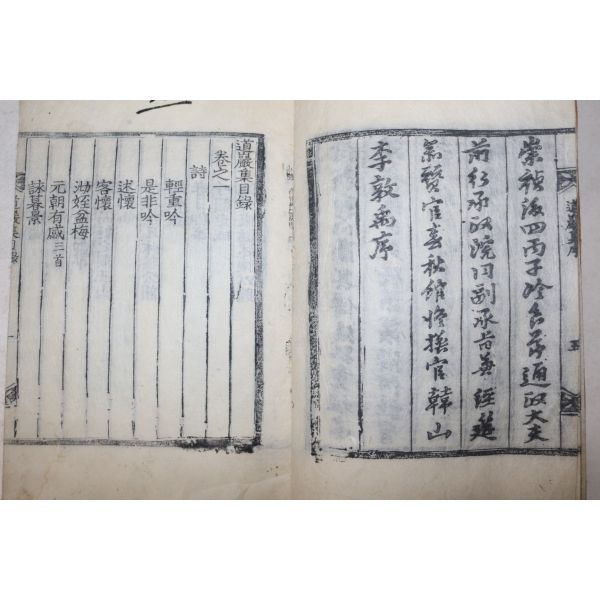 道巖集序 五
崇禎後四丙子冷食節通政大夫
前行承政院同副承旨兼經筵
參贊官春秋館修撰官韓山
李敦禹序
道巖集目錄
卷之一
詩
輕重吟
是非吟
述懷
客懷
泐姪盆梅
元朝有感三首
詠暮景
道巖集目錄